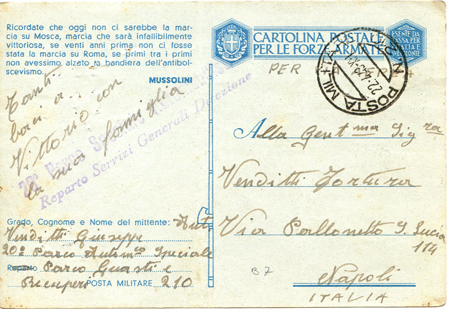 Ricordate che oggi non ci sarebbe la mar-
cia su Mosca, marcia che sarà infallibilmente
vittoriosa, se venti anni prima non ci fosse
stata la marcia su Roma, se primi tra i primi
non avessimo alzato la bandiera dell'antibol-
scevismo.
MUSSOLINI
Tanti
baci a
Vittorio con
la sua famiglia
Reparto Servizi Generali Direzione
Grado, Cognome e Nome del mittente:
Venditti Giuseppe
20º Parco Speciale
Reparto Parco Guasti e
Ricuperi POSTA MILITARE 210
CARTOLINA POSTALE
PER LE FORZE ARMATE
POSTA MILITARE N.
PER
Alla Gent ma Sig ra
Venditti Fortura
Via Pallonetto S. Lucia
114
B7
Napoli
ITALIA